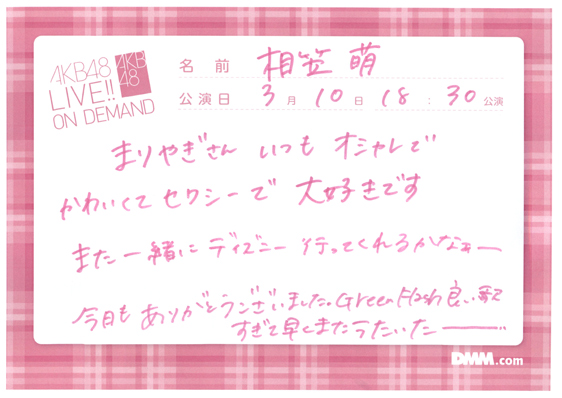 AKB48
LIVE!!
ON DEMAND
AKB
48
名前 相笠 萌
公演日 3月10日 18:30公演
まりやぎさん いつも オシャレで
かわいくて セクシーで 大好きです
また一緒に ディズニー 行ってくれるかなぁー
今日も ありがとうございました。Green Flash 良い歌
すぎて早くまたうたいたーーー
DMM.com